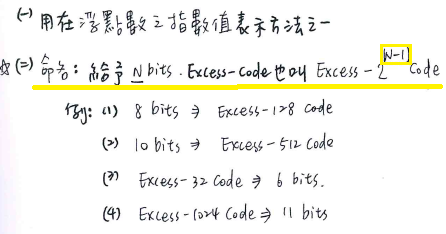 (一) 用在浮點數之指數值表示方法之一
☆(二) 命名：給予 N bits . Excess-code也叫 Excess-2^[N-1] Code
例：(1) 8 bits ⇒ Excess-128 code
(2) 10 bits ⇒ Excess-512 code
(3) Excess-32 code ⇒ 6 bits.
(4) Excess-1024 Code ⇒ 11 bits